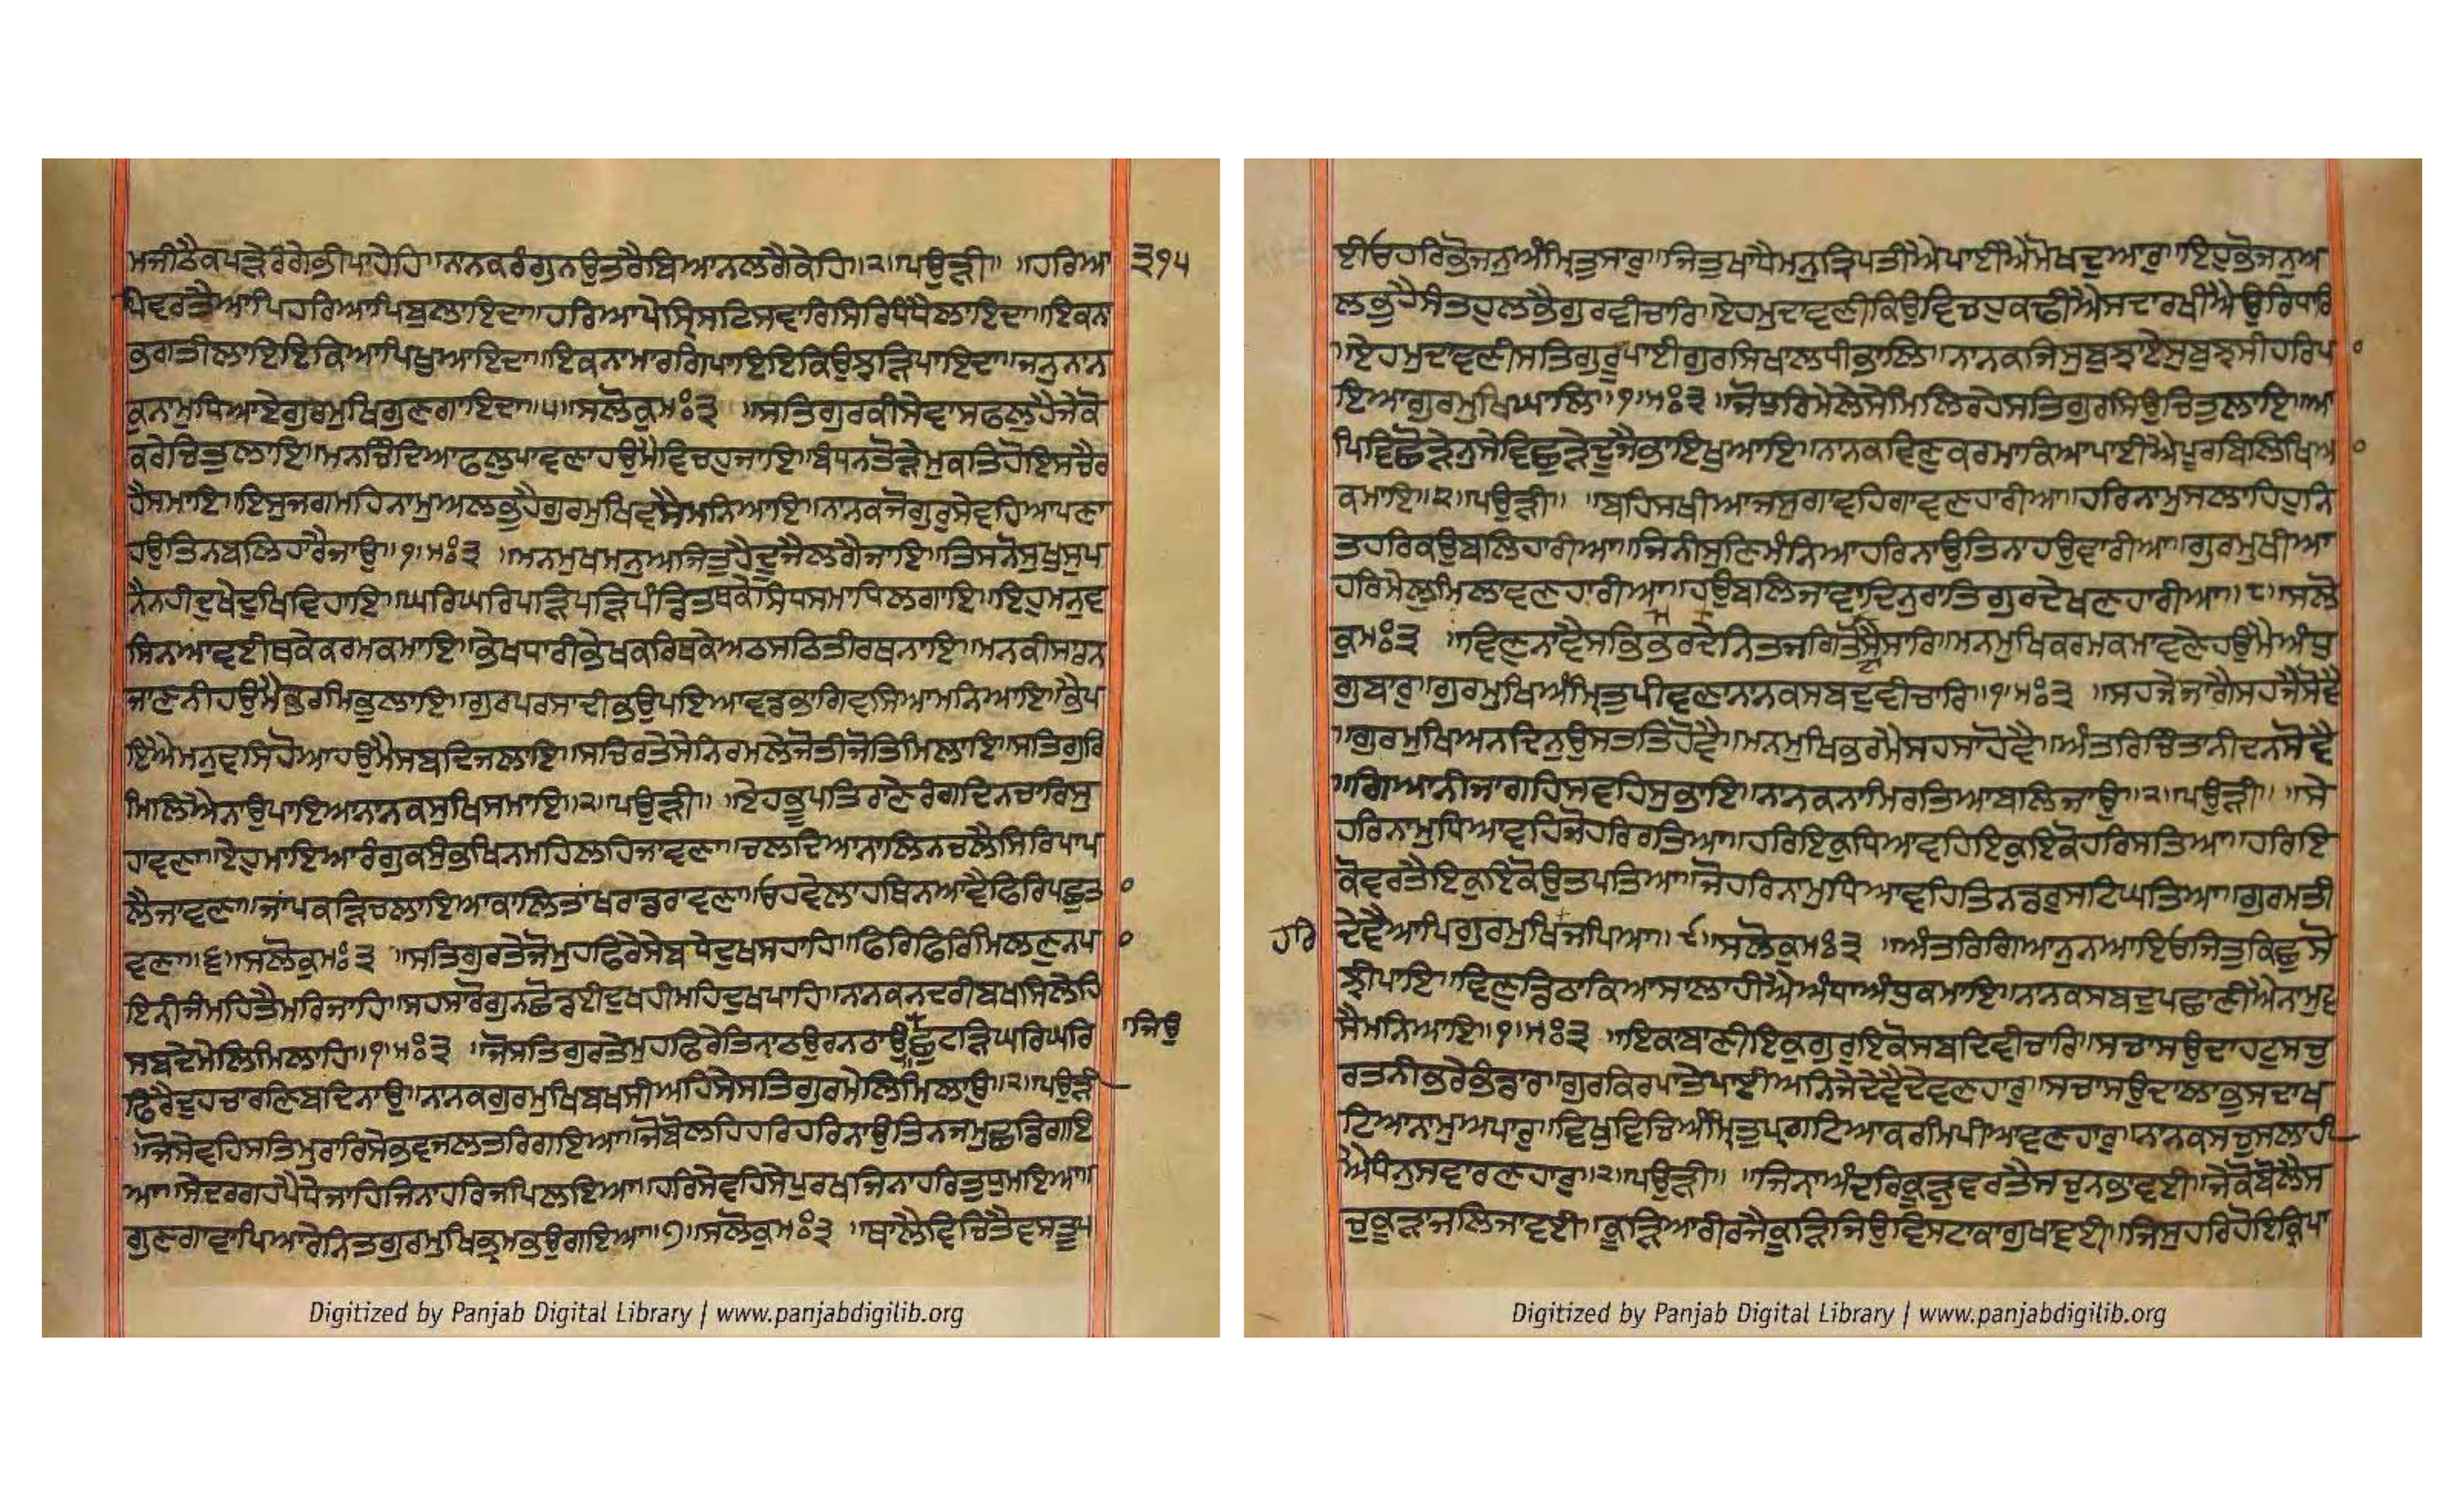 ਮਜੀਠੈਕਪੜੇਰੰਗੇਭੀਪਾਹੇਹਿ॥ਨਾਨਕਰੰਗੁਨਉਤਰੈਬਿਆਨਲਗੈਕੇਹਿ॥੨॥ਪਉੜੀ॥ ॥ਹਰਿਆ ੩੧੫
ਪੇਵਰਤੈਆਪਿਹਰਿਆਪਿਬੁਲਾਇਦਾ॥ਹਰਿਆਪੇਸ੍ਰਿਸਟਿਸਵਾਰਿਸਿਰਿਧੰਧੈਲਾਇਦਾ॥ਇਕਨਾ
ਭਗਤੀਲਾਇਇਕਿਆਪਿਖੁਆਇਦਾ॥ਇਕਨਾਮਾਰਗਿਪਾਇਇਕਿਉਝੜਿਪਾਇਦਾ॥ਜਨੁਨਾਨ
ਕੁਨਾਮੁਧਿਆਏਗੁਰਮੁਖਿਗੁਣਗਾਇਦਾ॥੫॥ਸਲੋਕੁਮਃ੩ ॥ਸਤਿਗੁਰਕੀਸੇਵਾਸਫਲੁਹੈਜੇਕੋ
ਕਰੇਚਿਤੁਲਾਇ॥ਮਨਚਿੰਦਿਆਫਲੁਪਾਵਣਾਹਉਮੈਵਿਚਹੁਜਾਇ॥ਬੰਧਨਤੋੜੈਮੁਕਤਿਹੋਇਸਚੈਰ
ਹੈਸਮਾਇ॥ਇਸੁਜਗਮਹਿਨਾਮੁਅਲਭੁਹੈਗੁਰਮੁਖਿਵਸੈਮਨਿਆਇ॥ਨਾਨਕਜੋਗੁਰੁਸੇਵਹਿਆਪਣਾ
ਹਉਤਿਨਬਲਿਹਾਰੈਜਾਉ॥੧॥ਮਃ੩ ॥ਮਨਮੁਖਮਨੁਅਜਿਤੁਹੈਦੂਜੈਲਗੈਜਾਇ॥ਤਿਸਨੋਸੁਖੁਸੁਪ
ਨੈਨਹੀਦੁਖੇਦੁਖਿਵਿਹਾਇ॥ਘਰਿਘਰਿਪੜਿਪੜਿਪੰਡਿਤਥਕੇਸਿਧਸਮਾਧਿਲਗਾਇ॥ਇਹੁਮਨੁਵ
ਸਿਨਆਵਈਥਕੇਕਰਮਕਮਾਇ॥ਭੇਖਧਾਰੀਭੇਖਕਰਿਥਕੇਅਠਸਠਿਤੀਰਥਨਾਇ॥ਮਨਕੀਸਾਰਨ
ਜਾਣਨੀਹਉਮੈਭਰਮਿਭੁਲਾਇ॥ਗੁਰਪਰਸਾਦੀਭਉਪਇਆਵਡਭਾਗਿਵਸਿਆਮਨਿਆਇ॥ਭੈਪ
ਇਐਮਨੁਵਸਿਹੋਆਹਉਮੈਸਬਦਿਜਲਾਇ॥ਸਚਿਰਤੇਸੇਨਿਰਮਲੇਜੋਤੀਜੋਤਿਮਿਲਾਇ॥ਸਤਿਗੁਰਿ
ਮਿਲਿਐਨਾਉਪਾਇਆਨਾਨਕਸੁਖਿਸਮਾਇ॥੨॥ਪਉੜੀ॥ ॥ਏਹਭੂਪਤਿਰਾਣੇਰੰਗਦਿਨਚਾਰਿਸੁ
ਹਾਵਣਾ॥ਏਹੁਮਾਇਆਰੰਗੁਕਸੁੰਭਖਿਨਮਹਿਲਹਿਜਾਵਣਾ॥ਚਲਦਿਆਨਾਲਿਨਚਲੈਸਿਰਿਪਾਪ
ਲੈਜਾਵਣਾ॥ਜਾਂਪਕੜਿਚਲਾਇਆਕਾਲਿਤਾਂਖਰਾਡਰਾਵਣਾ॥ਓਹਵੇਲਾਹਥਿਨਆਵੈਫਿਰਿਪਛੁਤਾ
ਵਣਾ॥੬॥ਸਲੋਕੁਮਃ੩ ॥ਸਤਿਗੁਰਤੇਜੋਮੁਹਫਿਰੇਸੇਬਧੇਦੁਖਸਹਾਹਿ॥ਫਿਰਿਫਿਰਿਮਿਲਣੁਨਪਾ
ਇਨੀਜੰਮਹਿਤੈਮਰਿਜਾਹਿ॥ਸਹਸਾਰੋਗੁਨਛੋਡਈਦੁਖਹੀਮਹਿਦੁਖਪਾਹਿ॥ਨਾਨਕਨਦਰੀਬਖਸਿਲੇਹਿ
ਸਬਦੇਮੇਲਿਮਿਲਾਹਿ॥੧॥ਮਃ੩ ॥ਜੋਸਤਿਗੁਰਤੇਮੁਹਫਿਰੇਤਿਨਾਠਉਰਨਠਾਉ॥ਛੁਟੜਿਘਰਿਘਰਿ ॥ਜਿਉ
ਫਿਰੈਦੁਹਚਾਰਣਿਬਦਿਨਾਉ॥ਨਾਨਕਗੁਰਮੁਖਿਬਖਸੀਅਹਿਸੇਸਤਿਗੁਰਮੇਲਿਮਿਲਾਉ॥੨॥ਪਉੜੀ
॥ਜੋਸੇਵਹਿਸਤਿਮੁਰਾਰਿਸੇਭਵਜਲਤਰਿਗਇਆ॥ਜੋਬੋਲਹਿਹਰਿਹਰਿਨਾਉਤਿਨਜਮੁਛਡਿਗਇ
ਆ॥ਸੇਦਰਗਹਪੈਧੇਜਾਹਿਜਿਨਾਹਰਿਜਪਿਲਇਆ॥ਹਰਿਸੇਵਹਿਸੇਪੁਰਖਜਿਨਾਹਰਿਤੁਧੁਮਇਆ॥
ਗੁਣਗਾਵਾਪਿਆਰੇਨਿਤਗੁਰਮੁਖਿਭ੍ਰਮਭਉਗਇਆ॥੭॥ਸਲੋਕੁਮਃ੩ ॥ਥਾਲੈਵਿਚਿਤੈਵਸਤੂਪ
Digitized by Panjab Digital Library | www.panjabdigilib.org
ਈਓਹਰਿਭੋਜਨੁਅੰਮ੍ਰਿਤੁਸਾਰੁ॥ਜਿਤੁਖਾਧੈਮਨੁਤ੍ਰਿਪਤੀਐਪਾਈਐਮੋਖਦੁਆਰੁ॥ਇਹੁਭੋਜਨੁਅ
ਲਭੁਹੈਸੰਤਹੁਲਭੈਗੁਰਵੀਚਾਰਿ॥ਏਹਮੁਦਾਵਣੀਕਿਉਵਿਚਹੁਕਢੀਐਸਦਾਰਖੀਐਉਰਿਧਾਰਿ
॥ਏਹਮੁਦਾਵਣੀਸਤਿਗੁਰੂਪਾਈਗੁਰਸਿਖਾਲਧੀਭਾਲਿ॥ਨਾਨਕਜਿਸੁਬੁਝਾਏਸੁਬੁਝਸੀਹਰਿਪਾ
ਇਆਗੁਰਮੁਖਿਘਾਲਿ॥੧॥ਮਃ੩ ॥ਜੋਧੁਰਿਮੇਲੇਸੇਮਿਲਿਰਹੇਸਤਿਗੁਰਸਿਉਚਿਤੁਲਾਇ॥ਆ
ਪਿਵਿਛੋੜੇਨੁਸੇਵਿਛੁੜੇਦੂਜੈਭਾਇਖੁਆਇ॥ਨਾਨਕਵਿਣੁਕਰਮਾਕਿਆਪਾਈਐਪੂਰਬਿਲਿਖਿਆ
ਕਮਾਇ॥੨॥ਪਉੜੀ॥ ॥ਬਹਿਸਖੀਆਜਸੁਗਾਵਹਿਗਾਵਣਹਾਰੀਆ॥ਹਰਿਨਾਮੁਸਲਾਹਿਹੁਨਿ
ਤਹਰਿਕਉਬਲਿਹਾਰੀਆ॥ਜਿਨੀਸੁਣਿਮੰਨਿਆਹਰਿਨਾਉਤਿਨਾਹਉਵਾਰੀਆ॥ਗੁਰਮੁਖੀਆ
ਹਰਿਮੇਲੁਮਿਲਾਵਣਹਾਰੀਆ॥ਹਉਬਲਿਜਾਵਾਦਿਨੁਰਾਤਿਗੁਰਦੇਖਣਹਾਰੀਆ॥੮॥ਸਲੋ
ਕੁਮਃ੩ ॥ਵਿਣੁਨਾਵੈਸਭਿਭਰਮਦੇਨਿਤਜਗਿਤੋਟਾਸੈਸਾਰਿ॥ਮਨਮੁਖਿਕਰਮਕਮਾਵਣੇਹਉਮੈਅੰਧੁ
ਗੁਬਾਰੁ॥ਗੁਰਮੁਖਿਅੰਮ੍ਰਿਤੁਪੀਵਣਾਨਾਨਕਸਬਦੁਵੀਚਾਰਿ॥੧॥ਮਃ੩ ॥ਸਹਜੇਜਾਗੈਸਹਜੇਸੋਵੈ
॥ਗੁਰਮੁਖਿਅਨਦਿਨੁਉਸਤਤਿਹੋਵੈ॥ਮਨਮੁਖਿਭਰਮੈਸਹਸਾਹੋਵੈ॥ਅੰਤਰਿਚਿੰਤਾਨੀਦਨਸੋਵੈ
॥ਗਿਆਨੀਜਾਗਹਿਸਵਹਿਸੁਭਾਇ॥ਨਾਨਕਨਾਮਿਰਤਿਆਬਲਿਜਾਉ॥੨॥ਪਉੜੀ॥ ॥ਸੇ
ਹਰਿਨਾਮੁਧਿਆਵਹਿਜੋਹਰਿਰਤਿਆ॥ਹਰਿਇਕੁਧਿਆਵਹਿਇਕੁਇਕੋਹਰਿਸਤਿਆ॥ਹਰਿਇ
ਕੋਵਰਤੈਇਕੁਇਕੋਉਤਪਤਿਆ॥ਜੋਹਰਿਨਾਮੁਧਿਆਵਹਿਤਿਨਡਰੁਸਟਿਘਤਿਆ॥ਗੁਰਮਤੀ
ਹਰਿ ਦੇਵੈਆਪਿਗੁਰਮੁਖਿਜਪਿਆ॥੯॥ਸਲੋਕੁਮਃ੩ ॥ਅੰਤਰਿਗਿਆਨੁਨਆਇਓਜਿਤੁਕਿਛੁਸੋ
ਝੀਪਾਇ॥ਵਿਣੁਡਿਠਾਕਿਆਸਾਲਾਹੀਐਅੰਧਾਅੰਧੁਕਮਾਇ॥ਨਾਨਕਸਬਦੁਪਛਾਣੀਐਨਾਮੁਵ
ਸੈਮਨਿਆਇ॥੧॥ਮਃ੩ ॥ਇਕਾਬਾਣੀਇਕੁਗੁਰੁਇਕੋਸਬਦਿਵੀਚਾਰਿ॥ਸਚਾਸਉਦਾਹਟੁਸਚੁ
ਰਤਨੀਭਰੇਭੰਡਾਰ॥ਗੁਰਕਿਰਪਾਤੇਪਾਈਅਨਿਜੇਦੇਵੈਦੇਵਣਹਾਰੁ॥ਸਚਾਸਉਦਾਲਾਭੁਸਦਾਖ
ਟਿਆਨਾਮੁਅਪਾਰੁ॥ਵਿਖੁਵਿਚਿਅੰਮ੍ਰਿਤੁਪ੍ਰਗਟਿਆਕਰਮਿਪੀਆਵਣਹਾਰੁ॥ਨਾਨਕਸਚੁਸਲਾਹੀ
ਐਧੰਨੁਸਵਾਰਣਹਾਰੁ॥੨॥ਪਉੜੀ॥ ॥ਜਿਨਾਅੰਦਰਿਕੂੜੁਵਰਤੈਸਚੁਨਭਾਵਈ॥ਜੇਕੋਬੋਲੈਸ
ਚੁਕੂੜਾਜਲਿਜਾਵਈ॥ਕੂੜਿਆਰੀਰਜੈਕੂੜਿਜਿਉਵਿਸਟਾਕਾਗੁਖਾਵਈ॥ਜਿਸੁਹਰਿਹੋਇਕ੍ਰਿਪਾ
Digitized by Panjab Digital Library | www.panjabdigilib.org